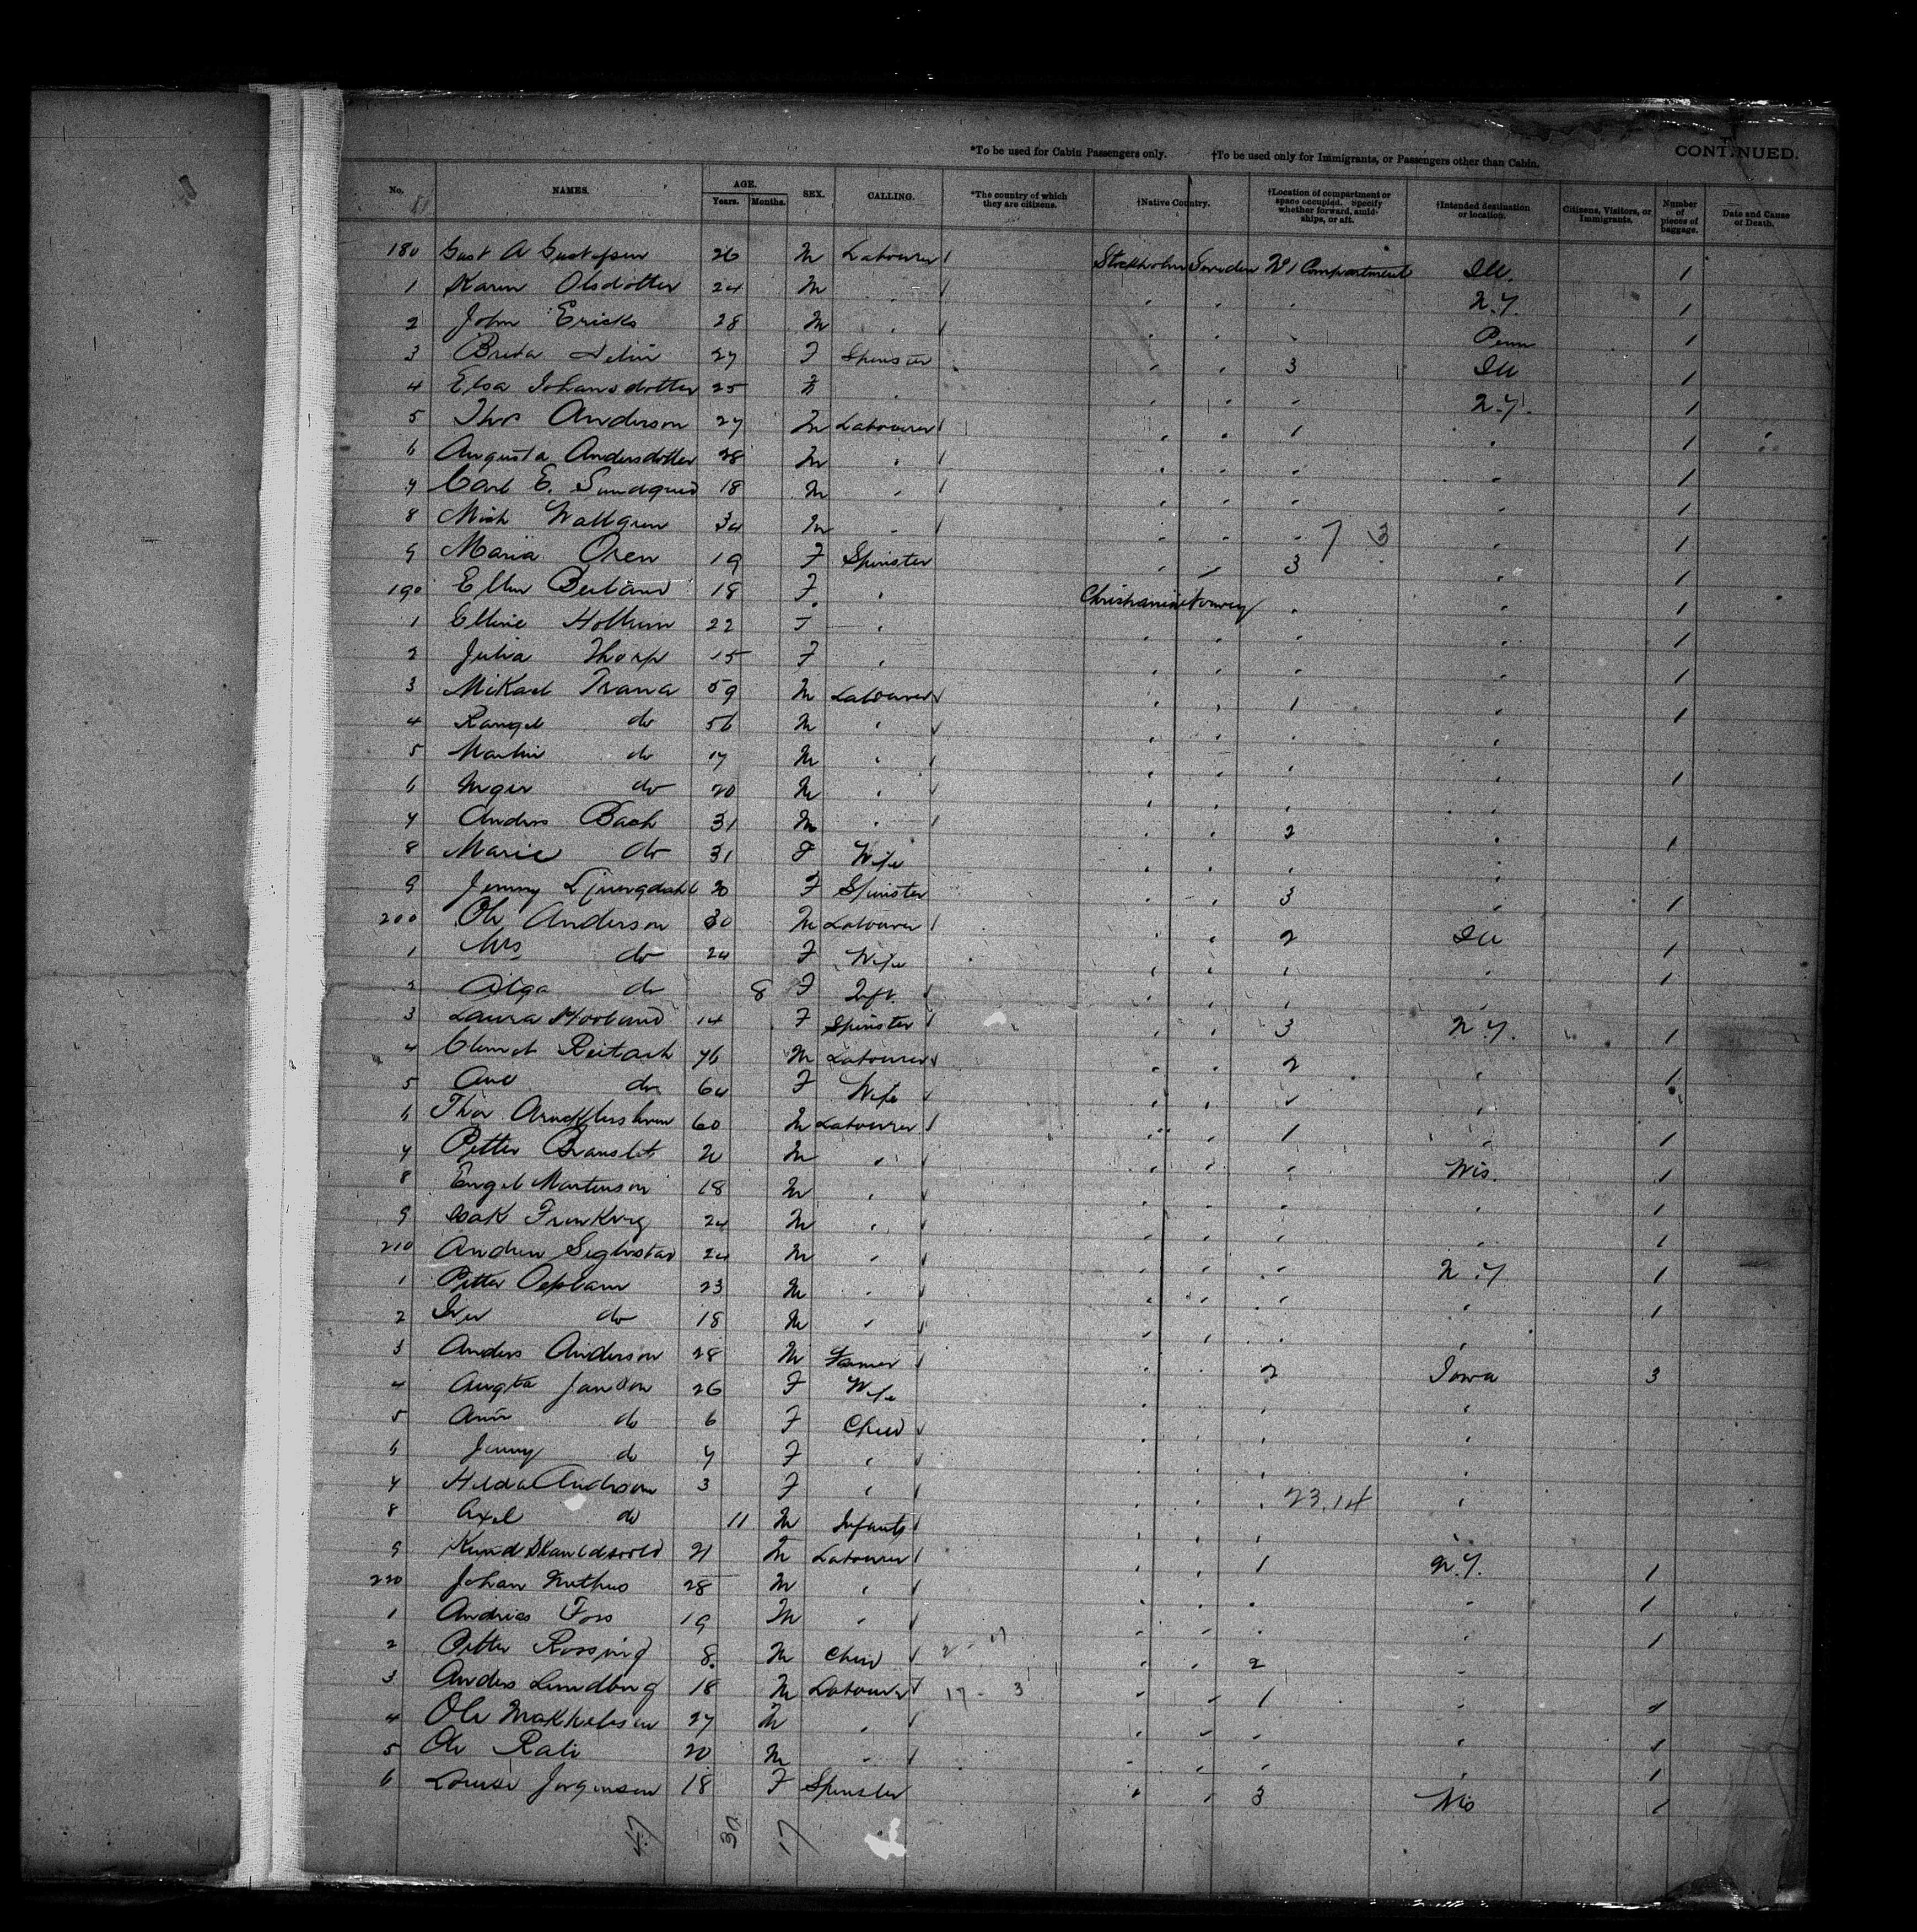 *To be used for Cabin Passengers only. †To be used only for Immigrants, or Passengers other than Cabin. CONTINUED.
No. NAMES. AGE. Years. Months. SEX. CALLING. *The country of which they are citizens. †Native Country. †Location of compartment or space occupied. Specify whether forward, amidships, or aft. †Intended destination or location. Citizens, Visitors, or Immigrants. Number of pieces of baggage. Date and Cause of Death.
180 Gust A Gustafson 26 M Labourer Stockholm Sweden No 1 Compartment Ill. 1
1 Karin Olsdotter 24 M N.Y. 1
2 John Ericks 28 M Penn 1
3 Breta 27 F Spinster 3 Ill 1
4 Elsa Johansdotter 25 F N.Y. 1
5 Thos Anderson 27 M Labourer 1 1
6 Augusta Andersdotter 28 M 1
7 Carl E. Sundquist 18 M 1
8 Wallgren 34 M 1
9 Maria Oren 19 F Spinster 3 1
190 Ellen 18 F Christiania Norway 1
1 Elline 22 F 1
2 Julia Thorp 15 F 1
3 Mikael Trana 59 M Labourer 1 1
4 Rangel do 56 M
5 Martin do 17 M 1
6 Inger do 20 M
7 Anders Bach 31 M 2 1
8 Marie do 31 F Wife
9 Jenny Ljungdahl 20 F Spinster 3 1
200 Ole Anderson 30 M Labourer 2 Ill 1
1 Mrs do 24 F Wife 1
2 Olga do 8 F Inft.
3 Laura 14 F Spinster 3 N.Y. 1
4 76 M Labourer 2 1
5 Ane do 64 F Wife
6 Thor 60 M Labourer 1 1
7 Petter 20 M Wis. 1
8 Engel Martinson 18 M 1
9 Isak 24 M 1
210 Andrew 24 M N.Y 1
1 Petter 23 M 1
2 Iver do 18 M
3 Anders Anderson 28 M Farmer 2 Iowa 3
4 Augta Janson 26 F Wife
5 Ann do 6 F Child
6 Jenny do 4 F
7 Hilda Anderson 3 F 23.14
8 Axel do 11 M Infants
9 21 M Labourer 1 N.Y. 1
220 Johan 28 M 1
1 Andrias Foss 19 M 1
2 Petter Rossing 8 M Child 2
3 Anders Lundberg 18 M Labourer 17 - 3 1 1
4 Ole 27 M 1
5 Ole Rali 20 M 1
6 Louise Jorginson 18 F Spinster 3 Wis 1
47 30 17